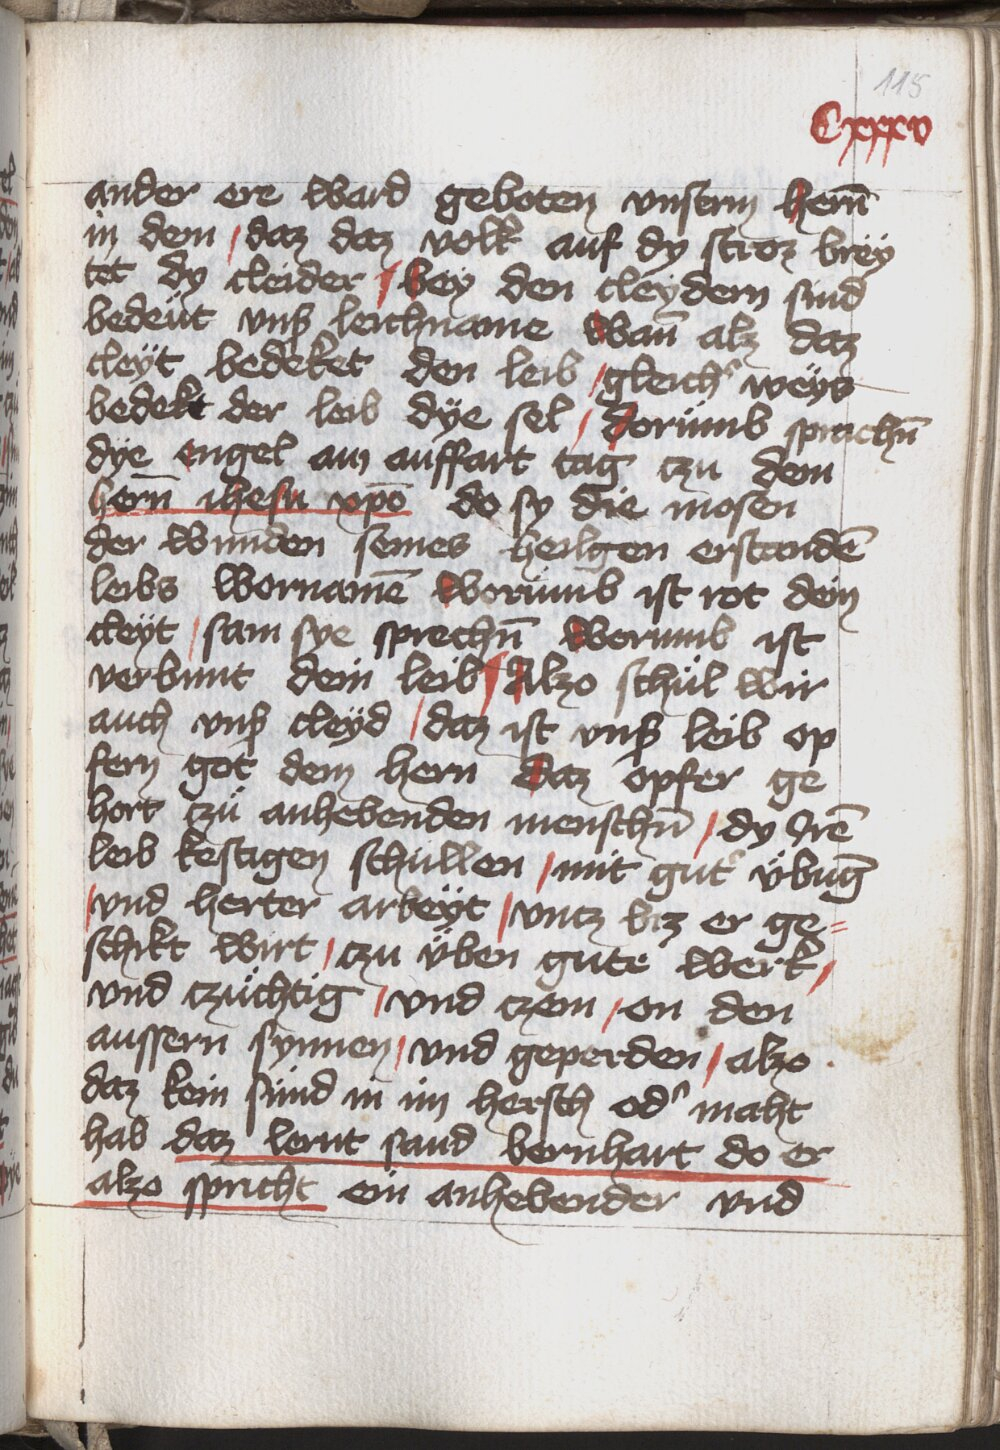 115
Cxxxv
ander ere ward geboten vnserm herñ
in dem / daz daz volk auf dy stroz brey
tet dy cleider / bey den cleydern sind
bedeüt vnß leichname Wañ alz daz
cleyt bedeket den leib / gleich᷑ weys
bedekt der leib dye sel / Dorümb sprachñ
dye engel am auffart tag czu dem
hern̄ ihesu xp̄o do sy die mosen
der wunden seines heilgen erstandē
leibs wornamē Worümb ist rot dein
cleyt / sam sye sprechn̄ Worumb ist
verbunt dein leib / Alzo schül wir
auch vnß cleyd / daz ist vnß leib op
fern got dem hern Daz opfer ge
hort czü anhebenden menschn̄ / dy irē
leib kestigen schüllen / mit gut᷑ übūg
/ vnd herter arbeyt / vntz biz er ge=
schikt wirt / czu üben gute werk /
vnd czüchtig / vnd czem / on den
aussern synnen / vnd geperden / alzo
daz kein sünd in im hersch od᷑ maht
hab daz lernt sand bernhart do er
alzo spricht ein anhebender vnd